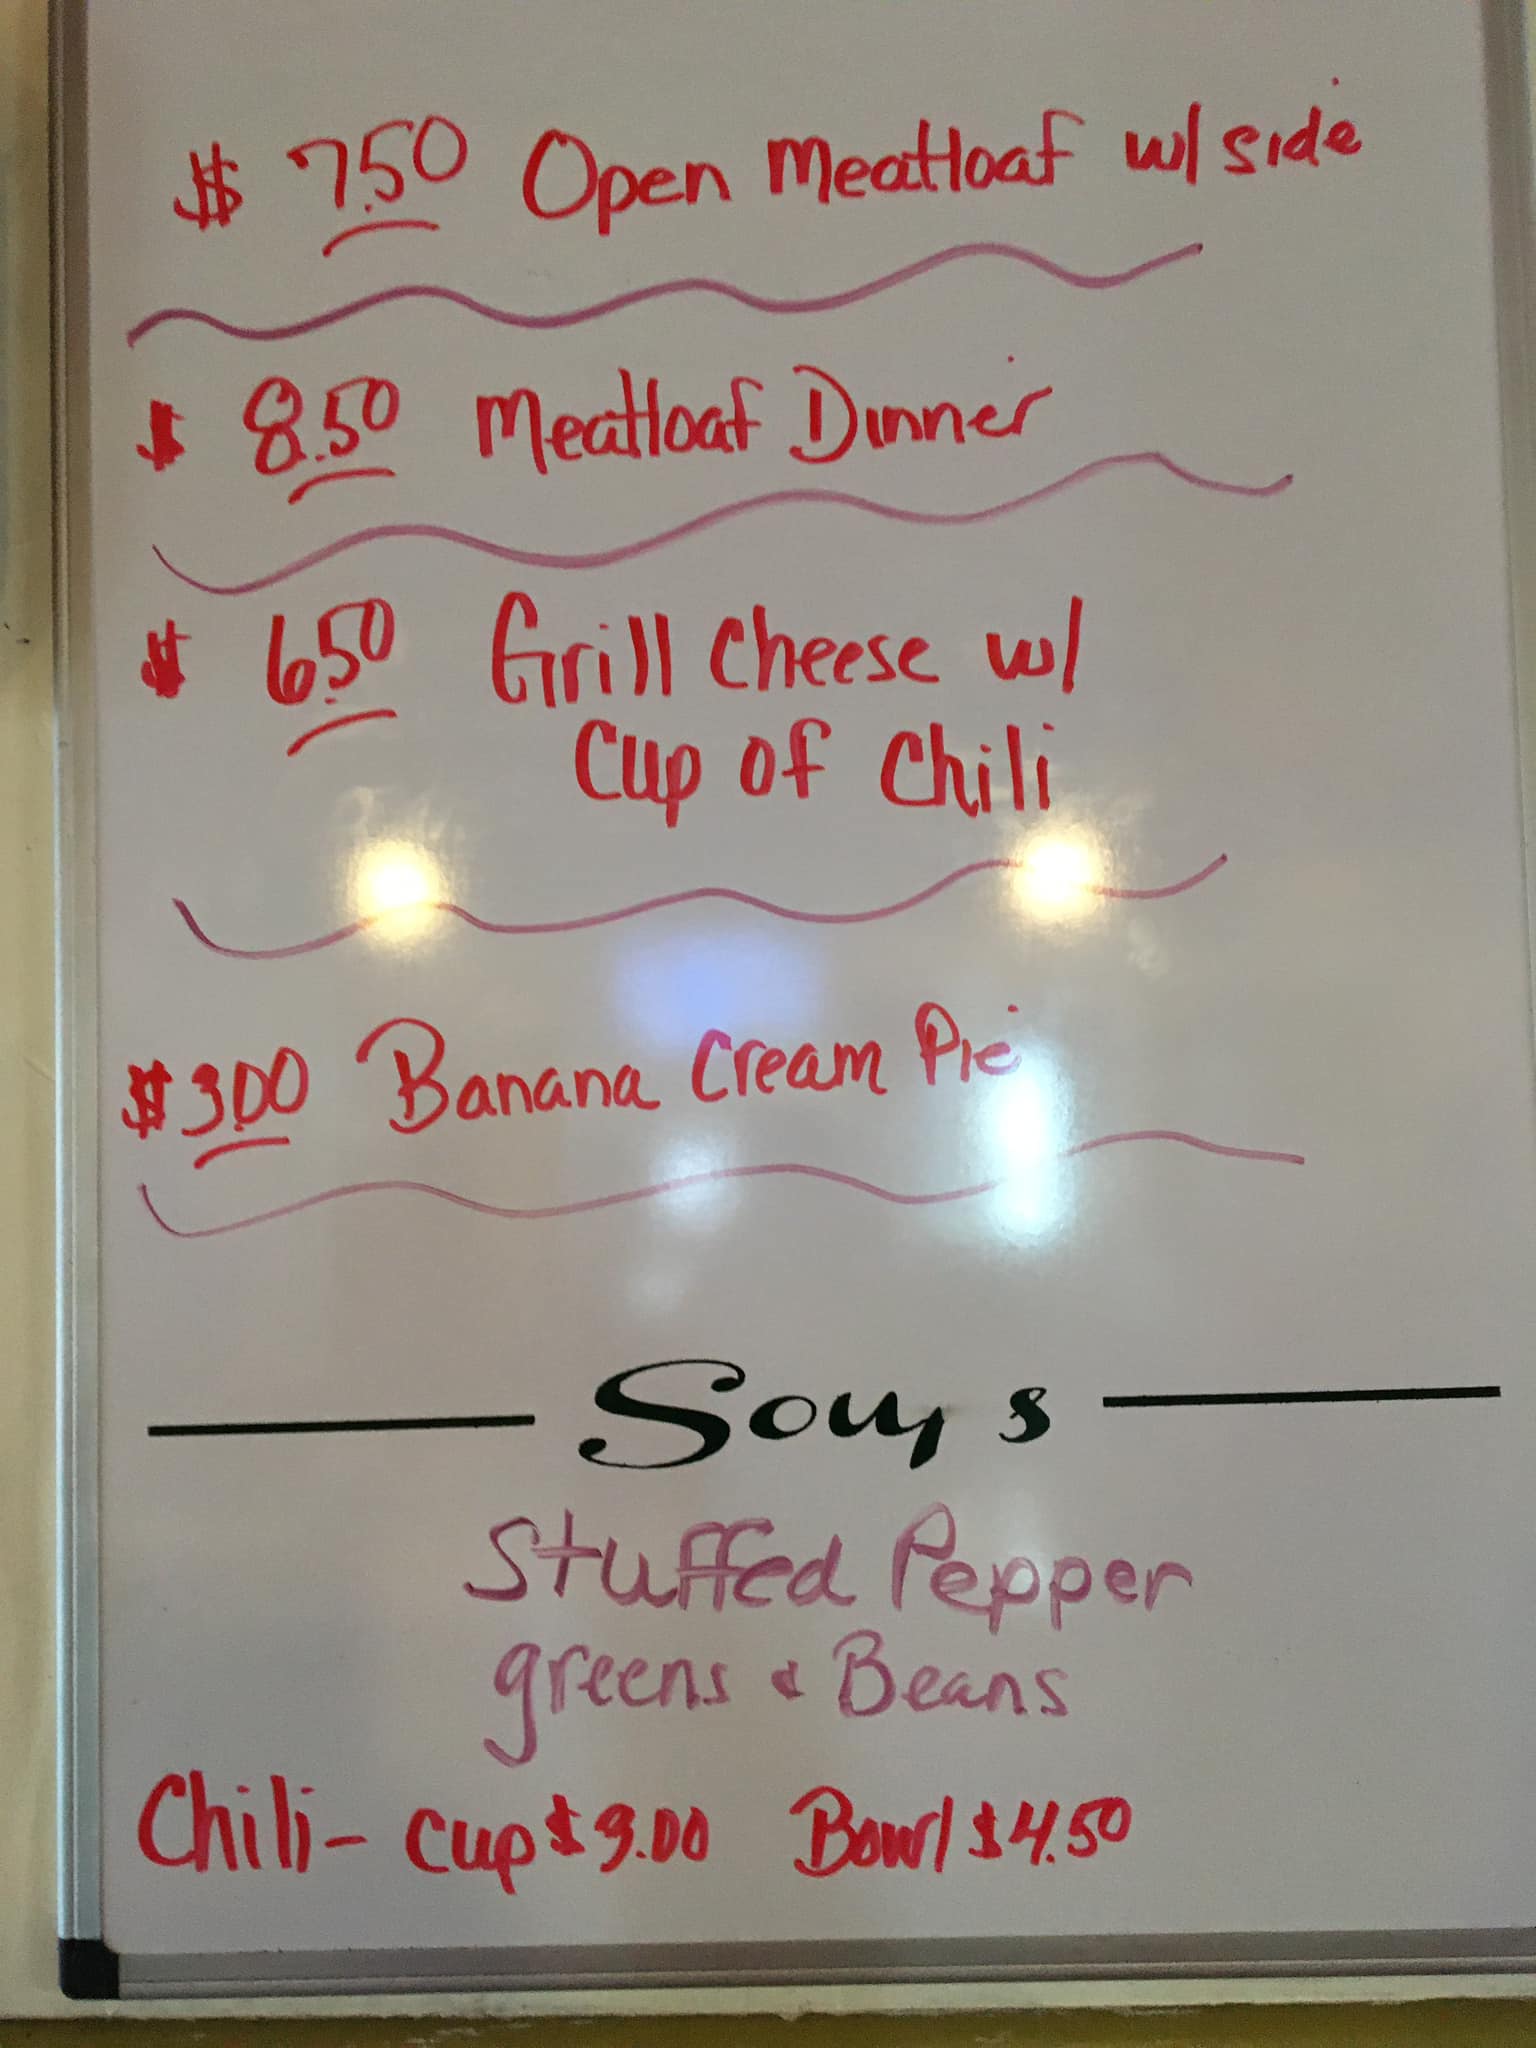 $ 7.50 Open Meatloaf w/ side
$ 8.50 Meatloaf Dinner
$ 6.50 Grill Cheese w/
Cup of Chili
$3.00 Banana Cream Pie
Soups
Stuffed Pepper
greens & Beans
Chili- cup $3.00 Bowl $4.50